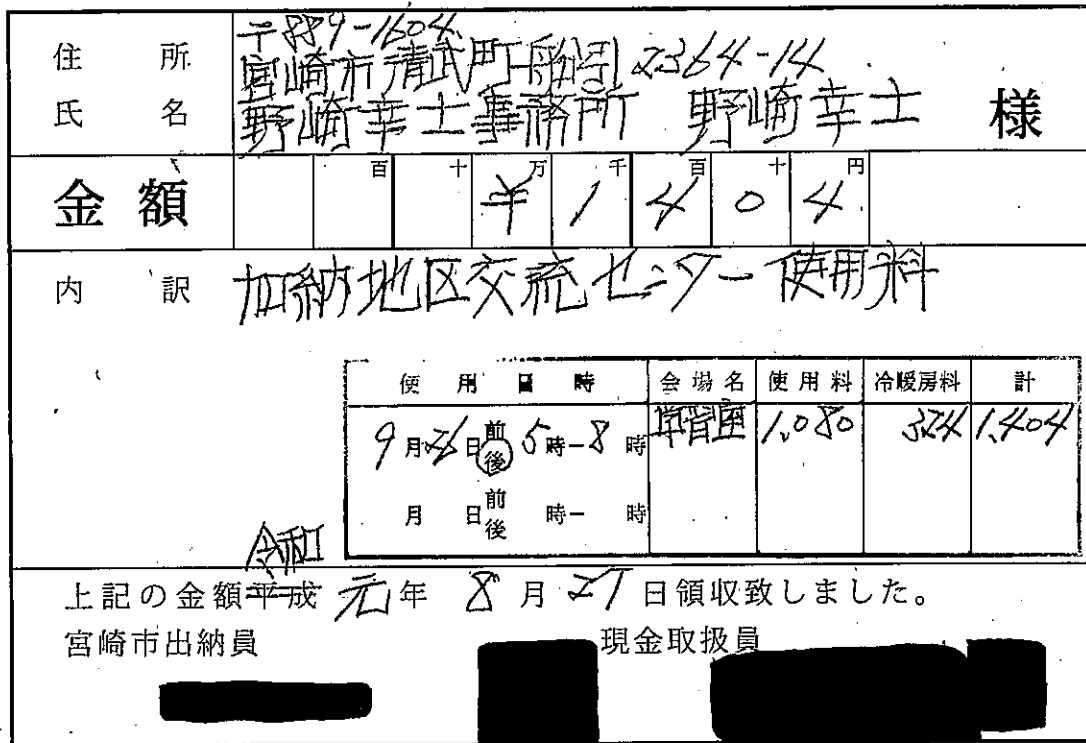 住所 〒889-1604
宮崎市清武町船引2364-14
氏名 野崎幸士事務所 野崎幸士 様
金額 百 十 万 千 百 十 円
¥1404
内訳 加納地区交流センター使用料
使用日時 会場名 使用料 冷暖房料 計
9月26日前後5時-8時 学習室 1,080 324 1,404
月 日前後 時- 時
令和
上記の金額平成元年8月27日領収致しました。
宮崎市出納員 現金取扱員